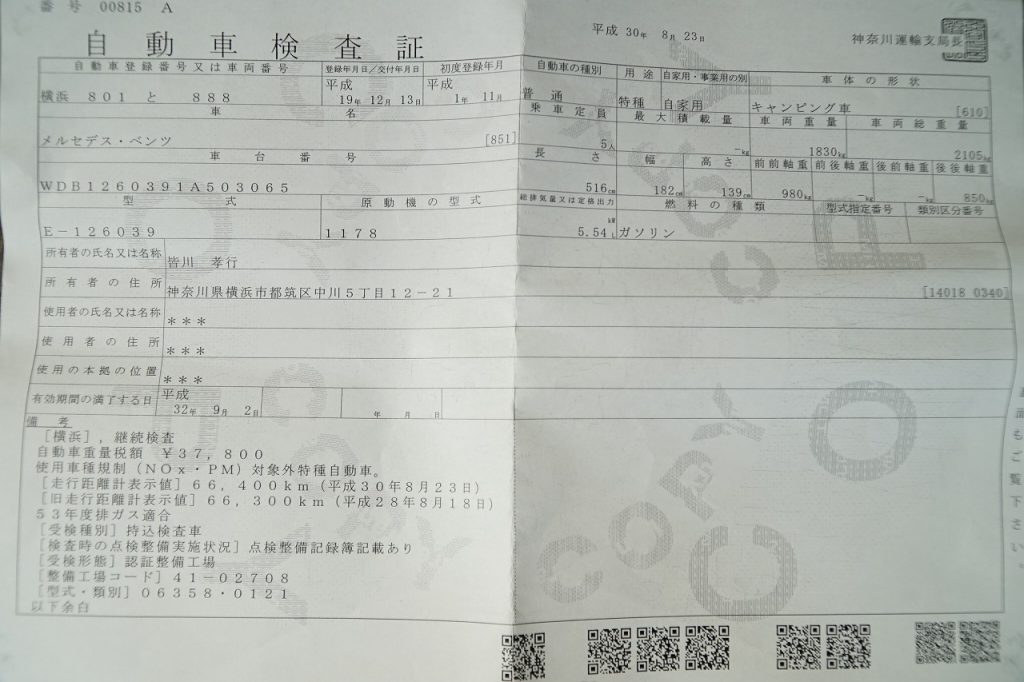 番号 00815 A
自動車検査証
平成 30年 8月 23日
神奈川運輸支局長
自動車登録番号又は車両番号 登録年月日/交付年月日 初度登録年月 自動車の種別 用途 自家用・事業用の別 車体の形状
横浜 801 と 888 平成 19年 12月 13日 平成 1年 11月 普通 特種 自家用 キャンピング車 [610]
車名 乗車定員 最大積載量 車両重量 車両総重量
メルセデス・ベンツ [851] 5人 -kg 1830kg 2105kg
車台番号 長さ 幅 高さ 前前軸重 前後軸重 後前軸重 後後軸重
WDB1260391A503065 516cm 182cm 139cm 980kg -kg -kg 850kg
型式 原動機の型式 総排気量又は定格出力 燃料の種類 型式指定番号 類別区分番号
E-126039 1178 kW 5.54L ガソリン
所有者の氏名又は名称 皆川 孝行
所有者の住所 神奈川県横浜市都筑区中川5丁目12-21 [14018 0340]
使用者の氏名又は名称 ***
使用者の住所 ***
使用の本拠の位置 ***
有効期間の満了する日 平成 32年 9月 2日 年 月 日
備考
[横浜],継続検査
自動車重量税額 ¥37,800
使用車種規制(NOx・PM)対象外特種自動車。
[走行距離計表示値]66,400km(平成30年8月23日)
[旧走行距離計表示値]66,300km(平成28年8月18日)
53年度排ガス適合
[受検種別]持込検査車
[検査時の点検整備実施状況]点検整備記録簿記載あり
[受検形態]認証整備工場
[整備工場コード]41-02708
[型式・類別]06358・0121
以下余白
面もご覧下さい。
COPY